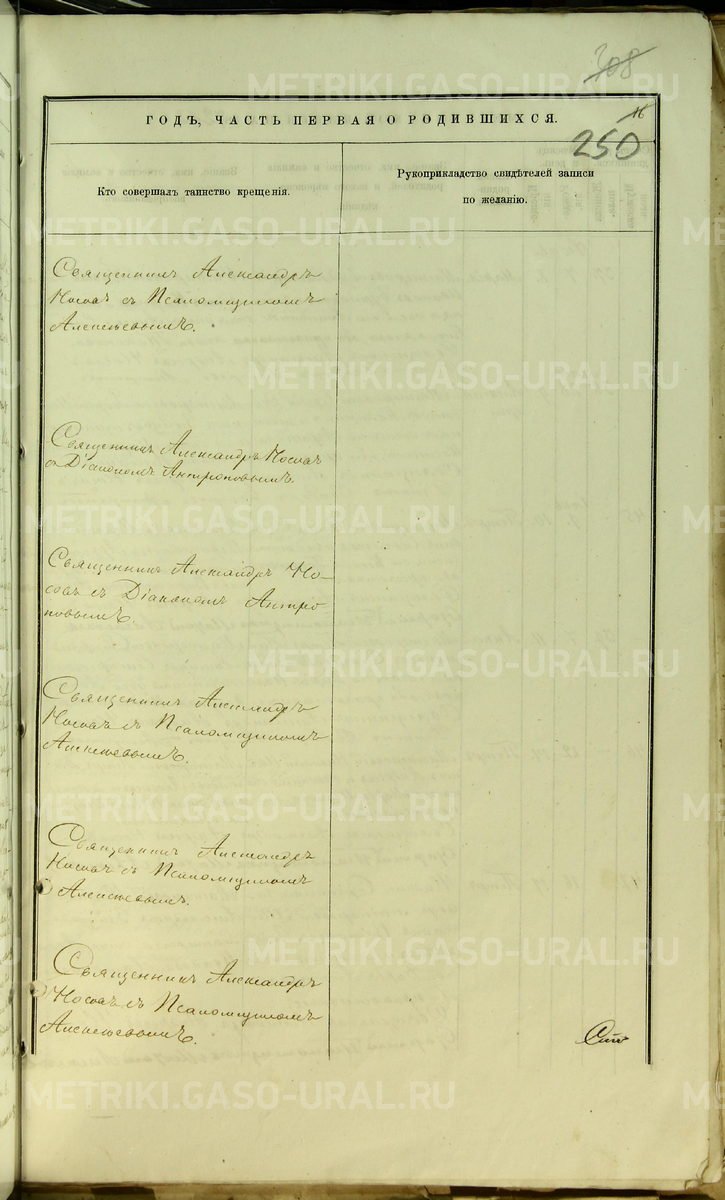 308
16
ГОДЪ, ЧАСТЬ ПЕРВАЯ О РОДИВШИХСЯ.
250
Кто совершалъ таинство крещенія.
Рукоприкладство свидѣтелей записи
по желанію.
Священникъ Александръ
Носовъ съ Псаломщикомъ
Алексѣевымъ.
Священникъ Александръ Носовъ
съ Діакономъ Антроповымъ.
Священникъ Александръ Но-
совъ съ Діакономъ Антро
повымъ.
Священникъ Александръ
Носовъ съ Псаломщикомъ
Алексѣевымъ.
Священникъ Александръ
Носовъ съ Псаломщикомъ
Алексѣевымъ.
Священникъ Александръ
Носовъ съ Псаломщикомъ
Алексѣевымъ.
METRIKI.GASO-URAL.RU